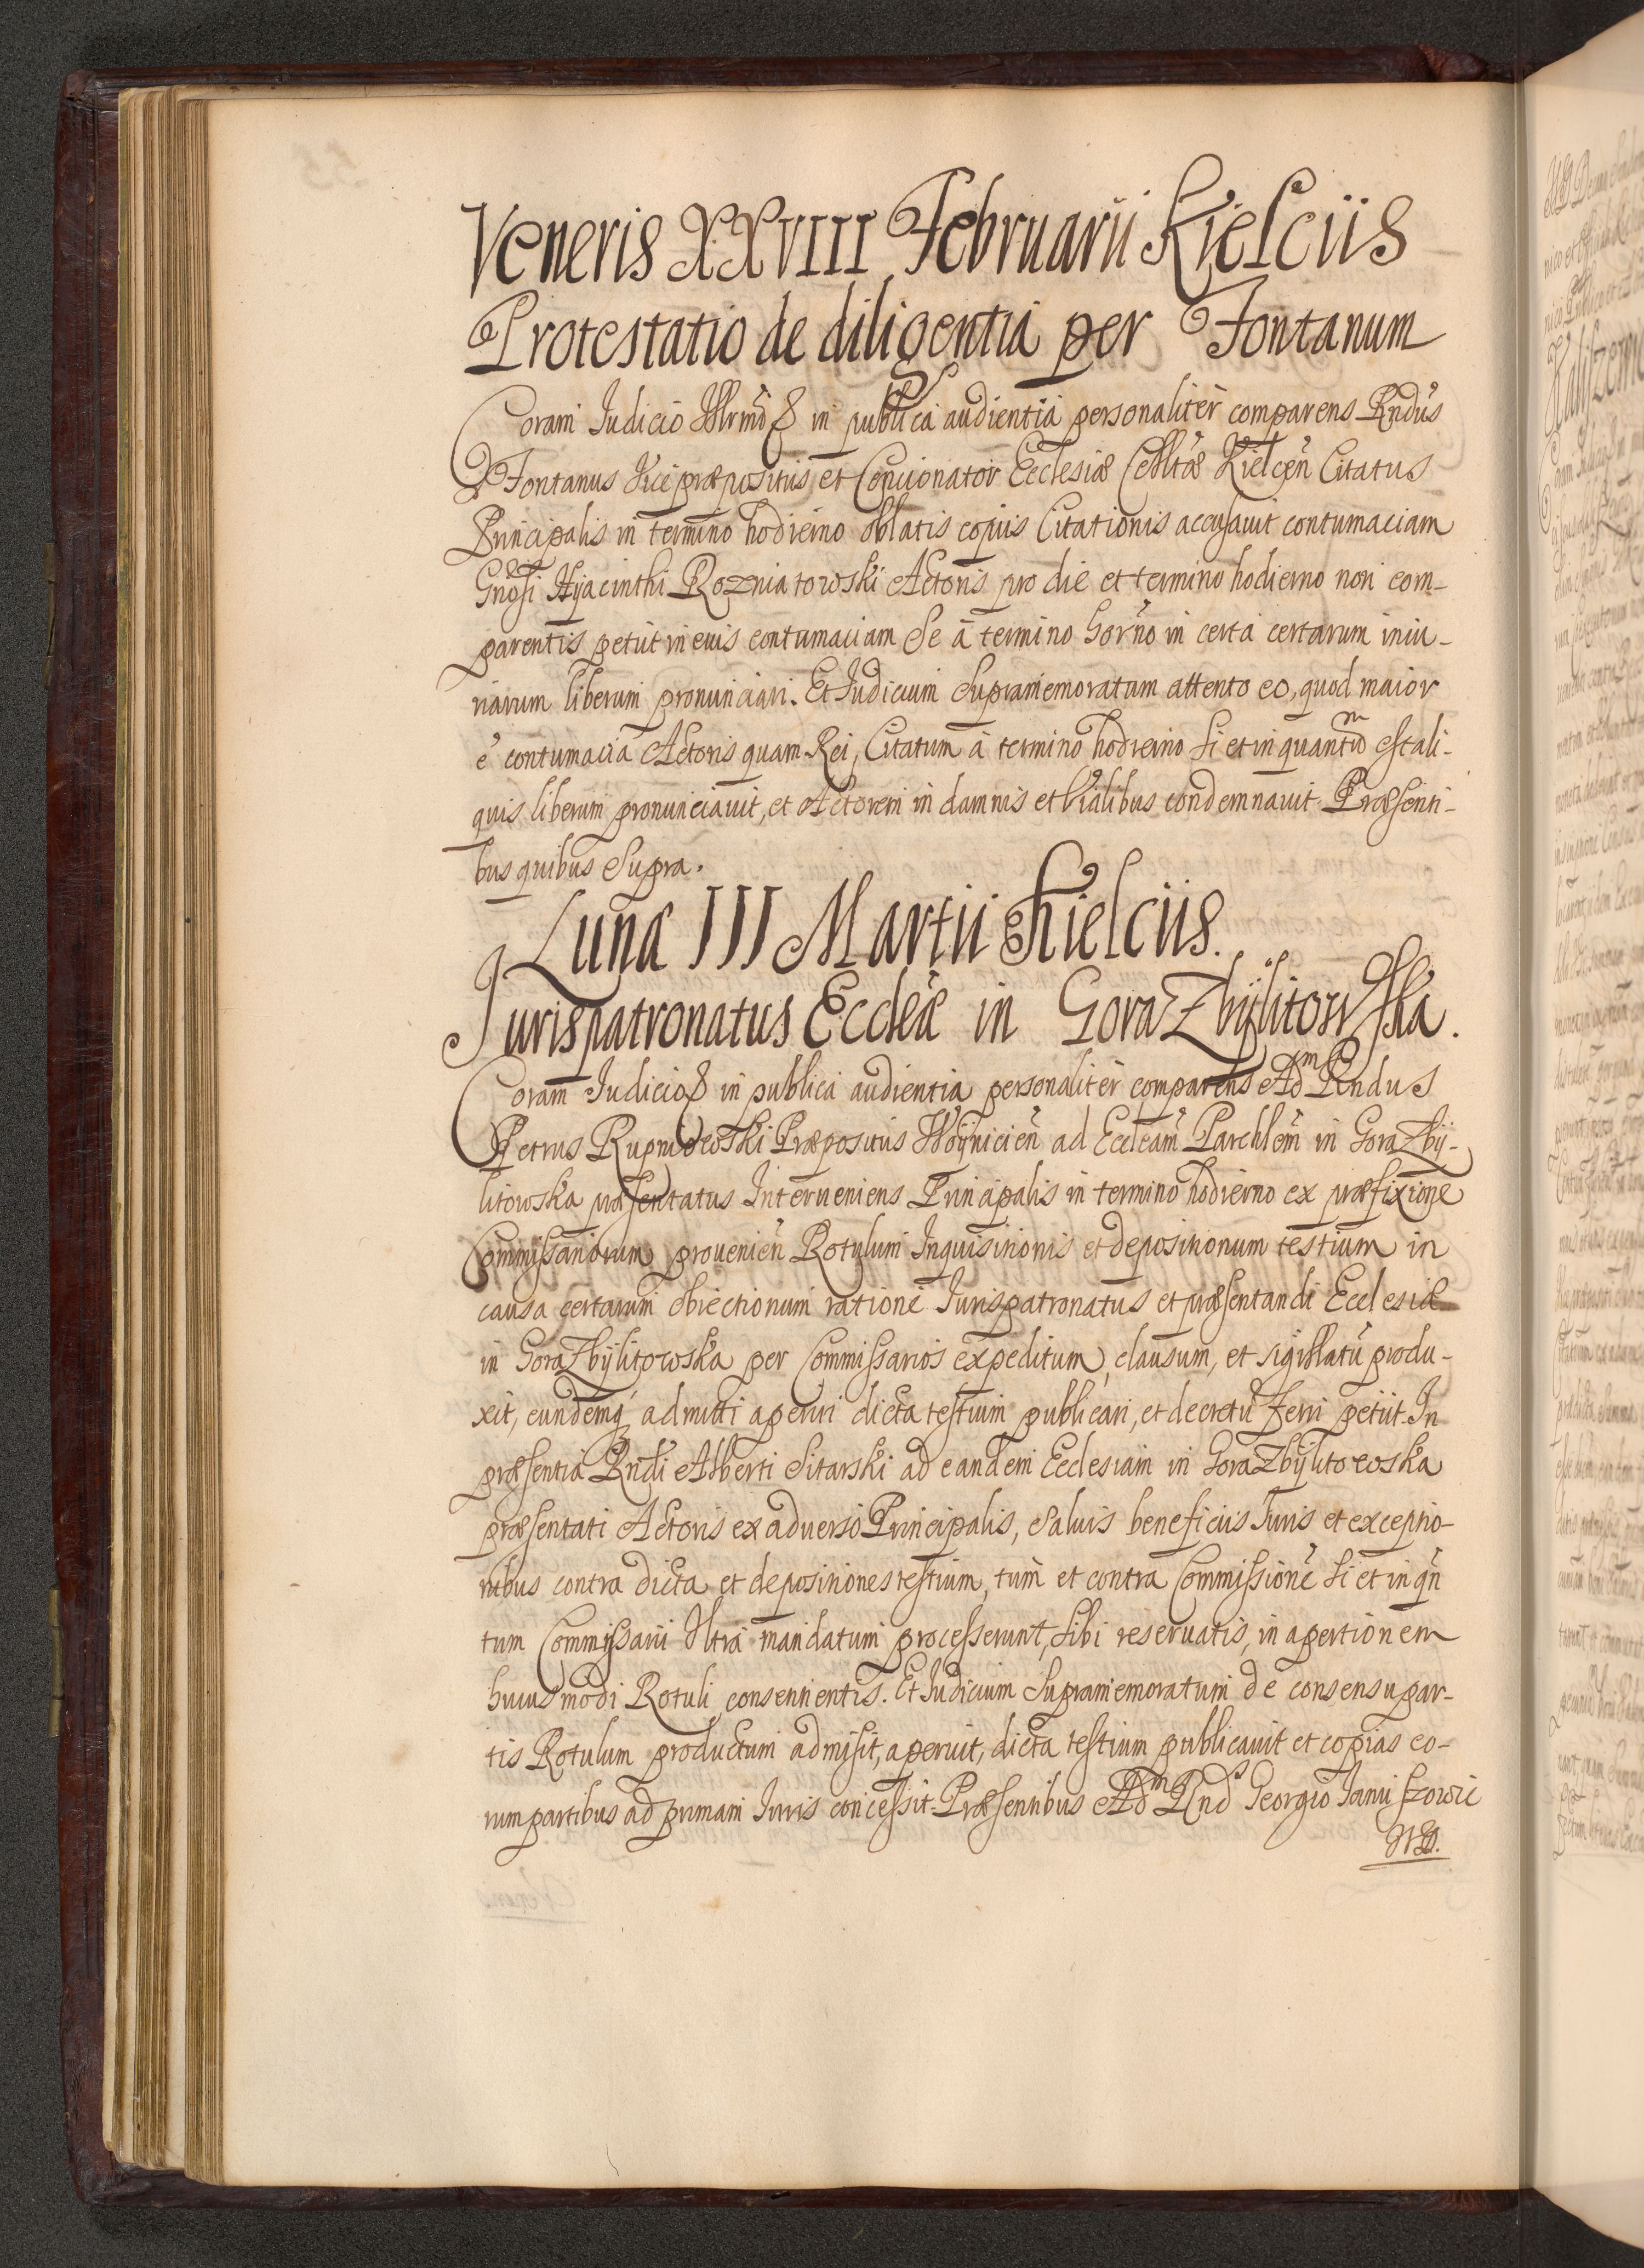 Veneris XXVIII Februarii Kielciis
Protestatio de diligentia per Fontanum
Coram Judicio Illrmo & in publica audientia personaliter comparens Rndus
Fontanus Vicepræpositus et Concionator Ecclesiæ Colltæ Kielcen Citatus
Principalis in termino hodierno oblatis copiis Citationis accusauit contumaciam
Gnosi Hyacinthi Rozniatowski Actoris pro die et termino hodierno non com-
parentis petiit in euis contumaciam Se à termino horno in certa certarum iniu-
riarum liberum pronunciari. Et Judicium Supramemoratum attento eo, quod maior
e contumacia Actoris quam Rei, Citatum à termino hodierno si et in quantum est ali-
quis liberum pronunciauit, et Actorem in damnis et lialibus condemnauit. Præsenti-
bus quibus Supra.
Luna III Martii Kielciis.
Jurispatronatus Ecclea in Gora Zbijlitowska.
Coram Judicio & in publica audientia personaliter comparens Adm Rndus
Petrus Rupniowski Præpositus Woynicien ad Eccleam Parchlem in Gora Zbij-
litowska præsentatus Interueniens Principalis in termino hodierno ex præfixione
Commissariorum prouenien Rotulum Inquisitionis et depositionum testium in
causa certarum obiectionum ratione Jurispatronatus et præsentandi Ecclesiæ
in Gora Zbijlitowska per Commissarios expeditum, clausum, et sigillatu produ-
xit, eundemq admitti aperiri dicta testium publicari, et decretu ferri petiit. In
præsentia Rndi Alberti Sitarski ad eandem Ecclesiam in Gora Zbijlitowska
præsentati Actoris ex aduerso Principalis, Saluis beneficiis Juris et exceptio-
nibus contra dicta et depositiones testium, tum et contra Commissione si et in qn
tum Commissarii Vltra mandatum processerunt, sibi reseruatis, in apertionem
huiusmodi Rotuli consentientis. Et Judicium Supramemoratum de consensu par-
tis Rotulum productum admisit, aperuit, dicta testium publicauit et copias eo-
rum partibus ad primam Juris concessit. Præsentibus Adm Rnd Georgio Januszowic